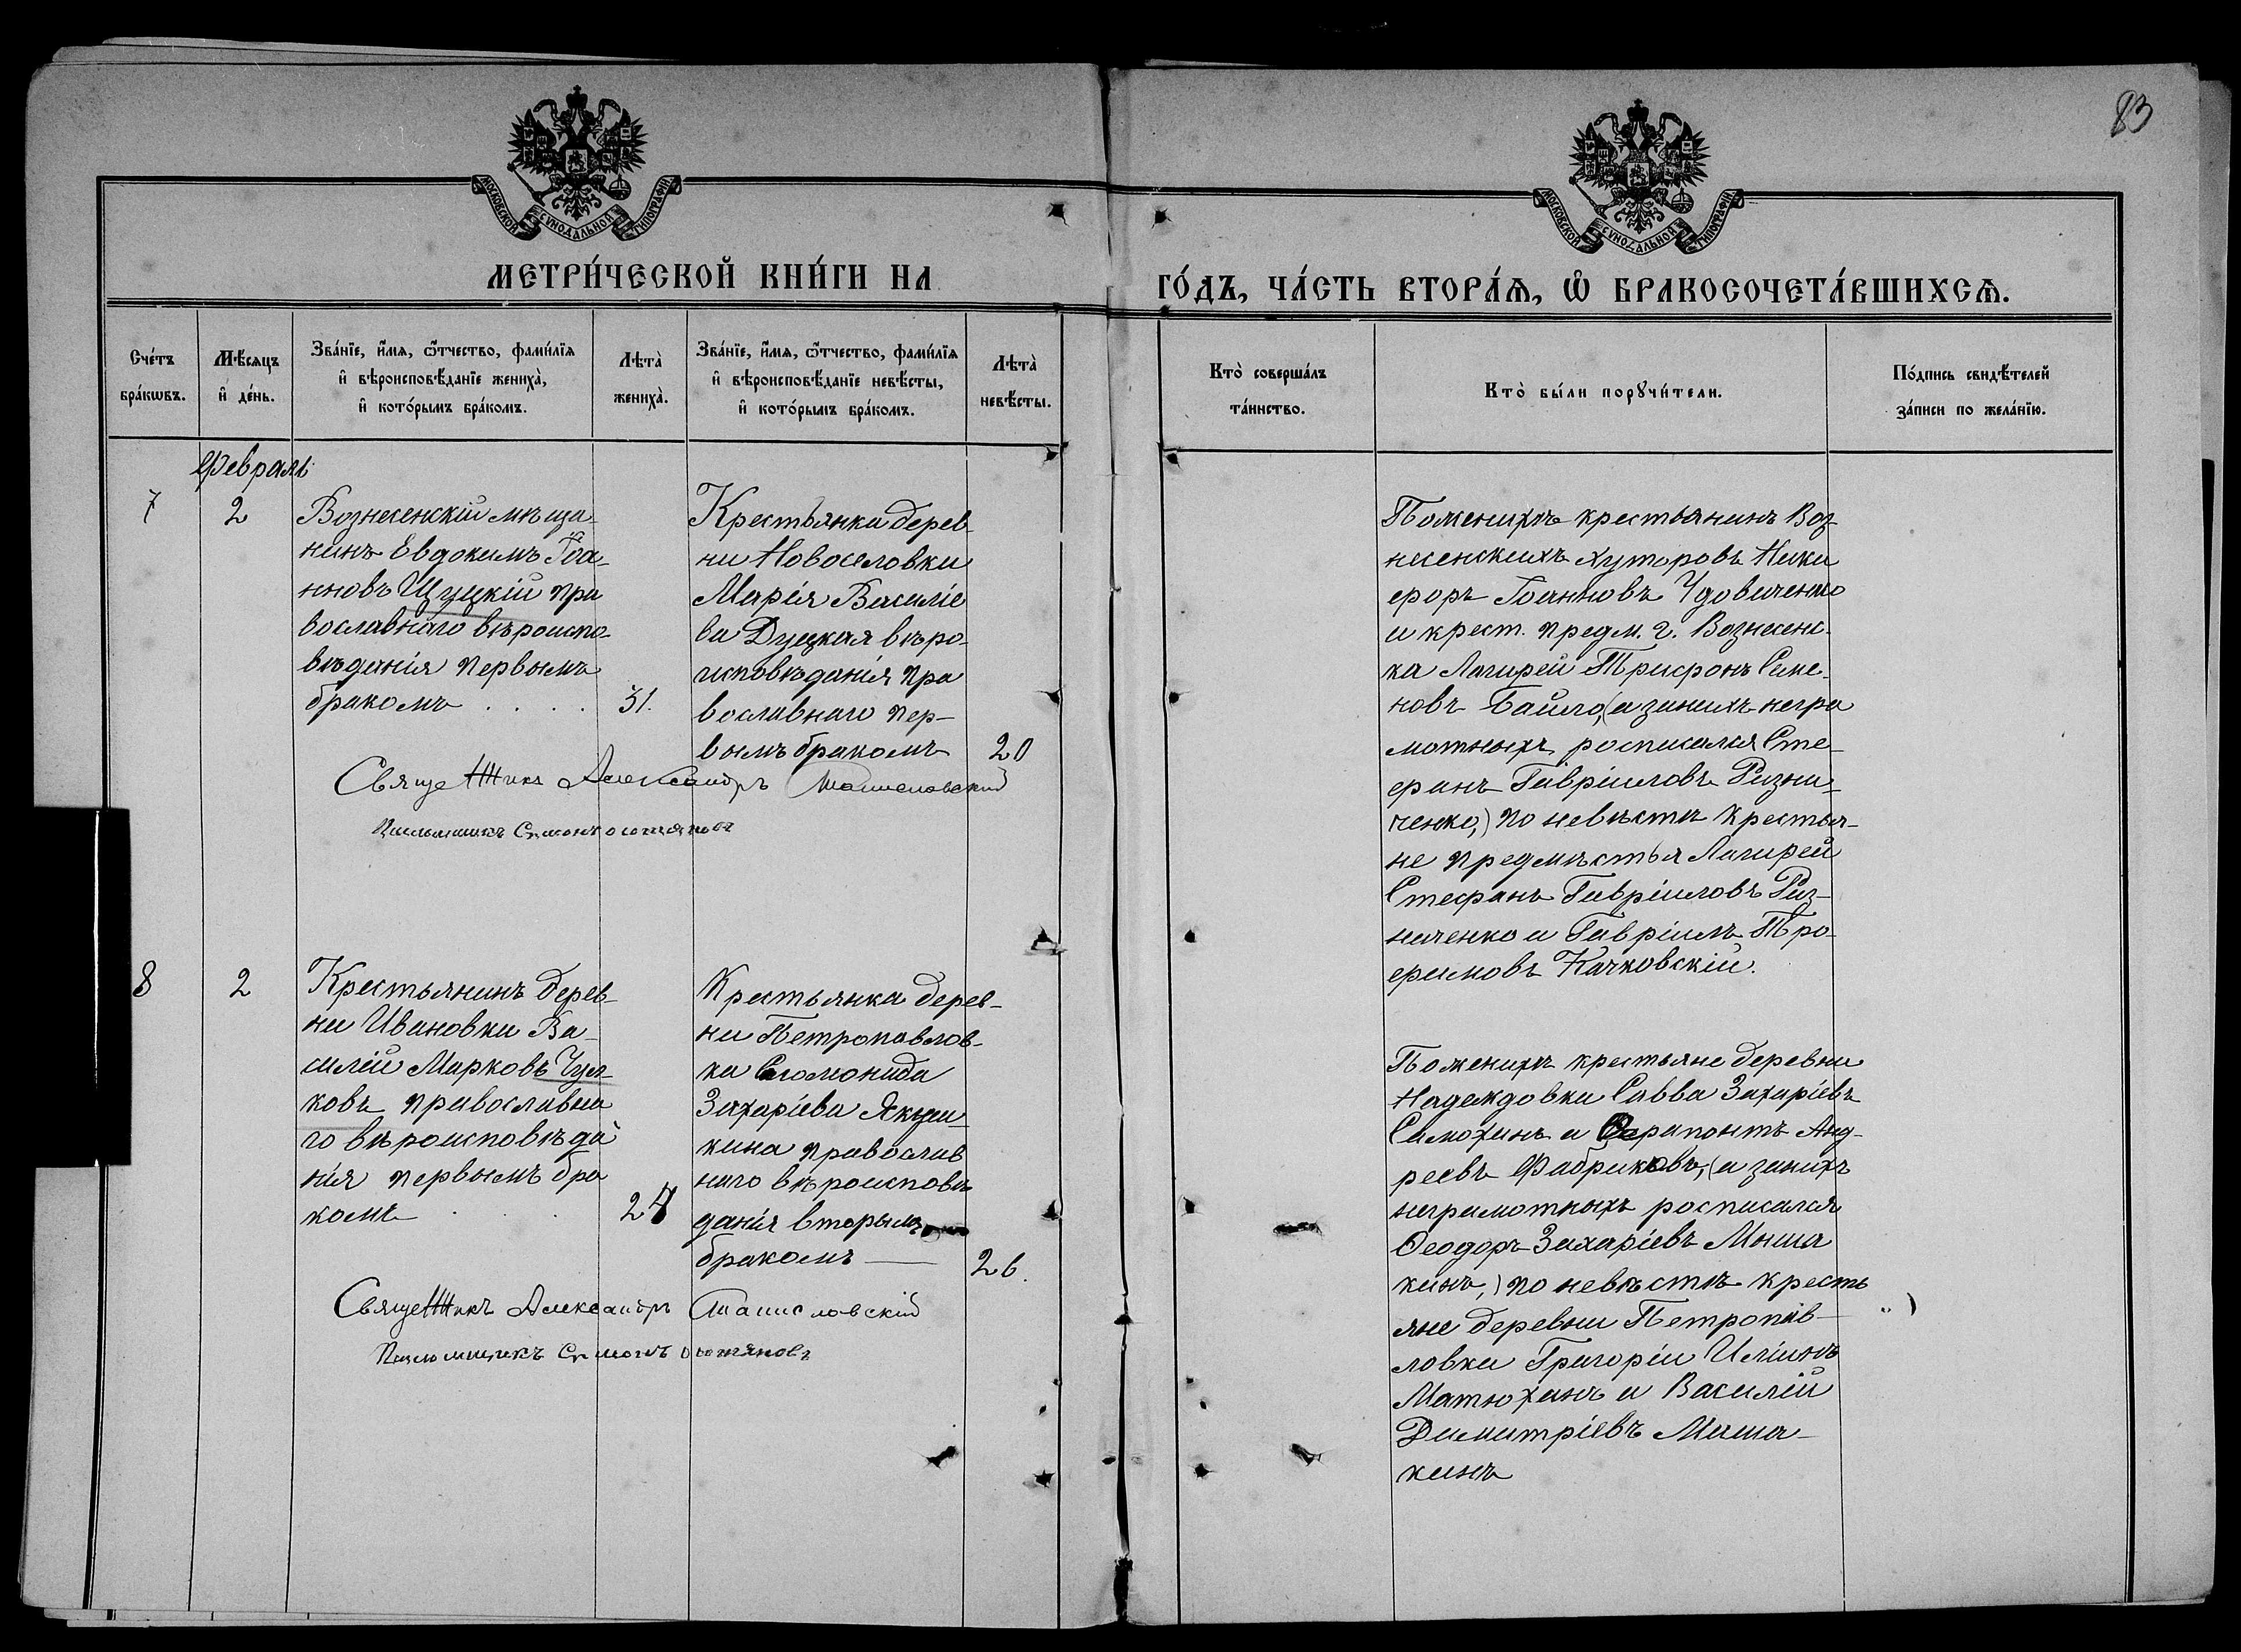 83
МОСКОВСКОЙ СѴНОДАЛЬНОЙ ТИПОГРАФІИ
МОСКОВСКОЙ СѴНОДАЛЬНОЙ ТИПОГРАФІИ
МЕТРИ́ЧЕСКОЙ КНИ́ГИ НА
ГО́ДЪ, ЧА́СТЬ ВТОРА́Ѧ, Ѽ БРАКОСОЧЕТА́ВШИХСѦ.
Сче́тъ
бра́кѡвъ.
Мѣ́сѧцъ
и҆ де́нь.
Зва́нїе, и҆́мѧ, ѻ҆́тчество, фами́лїѧ
и҆ вѣроисповѣ́данїе жениха̀,
и҆ кото́рымъ бра́комъ.
Лѣта̀
жениха̀.
Зва́нїе, и҆́мѧ, ѻ҆́тчество, фами́лїѧ
и҆ вѣроисповѣ́данїе невѣ́сты,
и҆ кото́рымъ бра́комъ.
Лѣта̀
невѣ́сты.
Кто̀ соверша́лъ
та́инство.
Кто̀ бы́ли порꙋчи́тели.
По́дпись свидѣ́телей
за́писи по жела́нїю.
Февраль
7
2
Вознесенскій мѣща-
нинъ Евдокимъ Іоа-
нновъ Щуцкій пра
вославнаго вѣроиспо-
вѣданія первымъ
бракомъ . . . .
31.
Крестьянка дерев
ни Новоселовки
Марія Василіе
ва Дуцкая вѣро-
исповѣданія пра
вославнаго пер-
вымъ бракомъ
20
Священникъ Александръ Станиславскій
Псаломщикъ Симонъ
По женихѣ крестьянинъ Воз-
несенскихъ хуторовъ Ники
форъ Іоанновъ Удовиченко
и крест. предм. г. Вознесенс-
ка Лагирей Трифонъ Симе-
новъ Байло, (а за нихъ негра
мотныхъ росписался Сте-
фанъ Гавріиловъ Ризни-
ченко,) по невѣстѣ крестья-
не предмѣстья Лагирей
Стефанъ Гавріиловъ Риз-
ниченко и Гавріилъ Тро-
фимовъ Качковскій.
8
2
Крестьянинъ дерев-
ни Ивановки Ва-
силій Марковъ Чул-
ковъ православна
го вѣроисповѣда
нія первымъ бра
комъ . . .
24
Крестьянка дерев-
ни Петропавлов-
ка Соломонида
Захаріева Якуш-
кина православ
наго вѣроисповѣ
данія вторымъ
бракомъ —
26.
Священникъ Александръ Станиславскій
Псаломщикъ Симонъ
По женихѣ крестьяне деревни
Надеждовки Савва Захаріевъ
Самохинъ и Ферапонтъ Анд-
реевъ Фабриковъ, (а за нихъ
неграмотныхъ росписался
Ѳеодоръ Захаріевъ Мыша
кинъ,) по невѣстѣ кресть
яне деревни Петропав-
ловки Григорій Иліинъ
Матюхинъ и Василій
Димитріевъ Миша-
кинъ